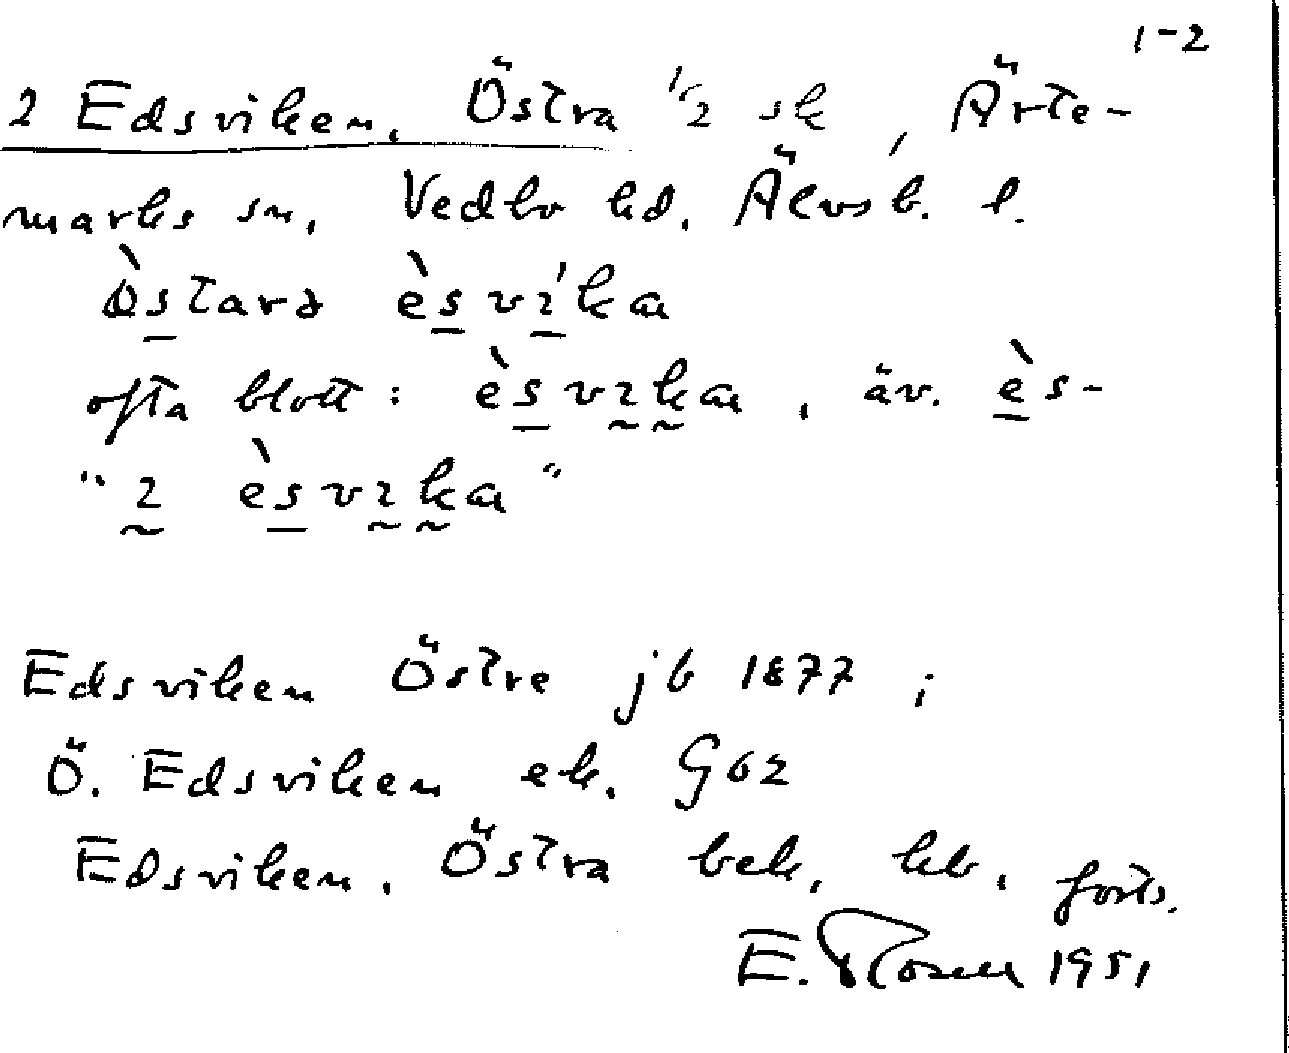 1-2
2 Edsviken, Östra 1/2 sk, Ärte-
marks sn, Vedbo hd, Älvsb. l.
òstarə èsvíka
ofta blott: èsvıka, äv. ès-
"2 èsvıka"
Edsviken Östre jb 1877;
Ö. Edsviken ek. G62
Edsviken, Östra bek, kb, forts.
E. Rosell 1951